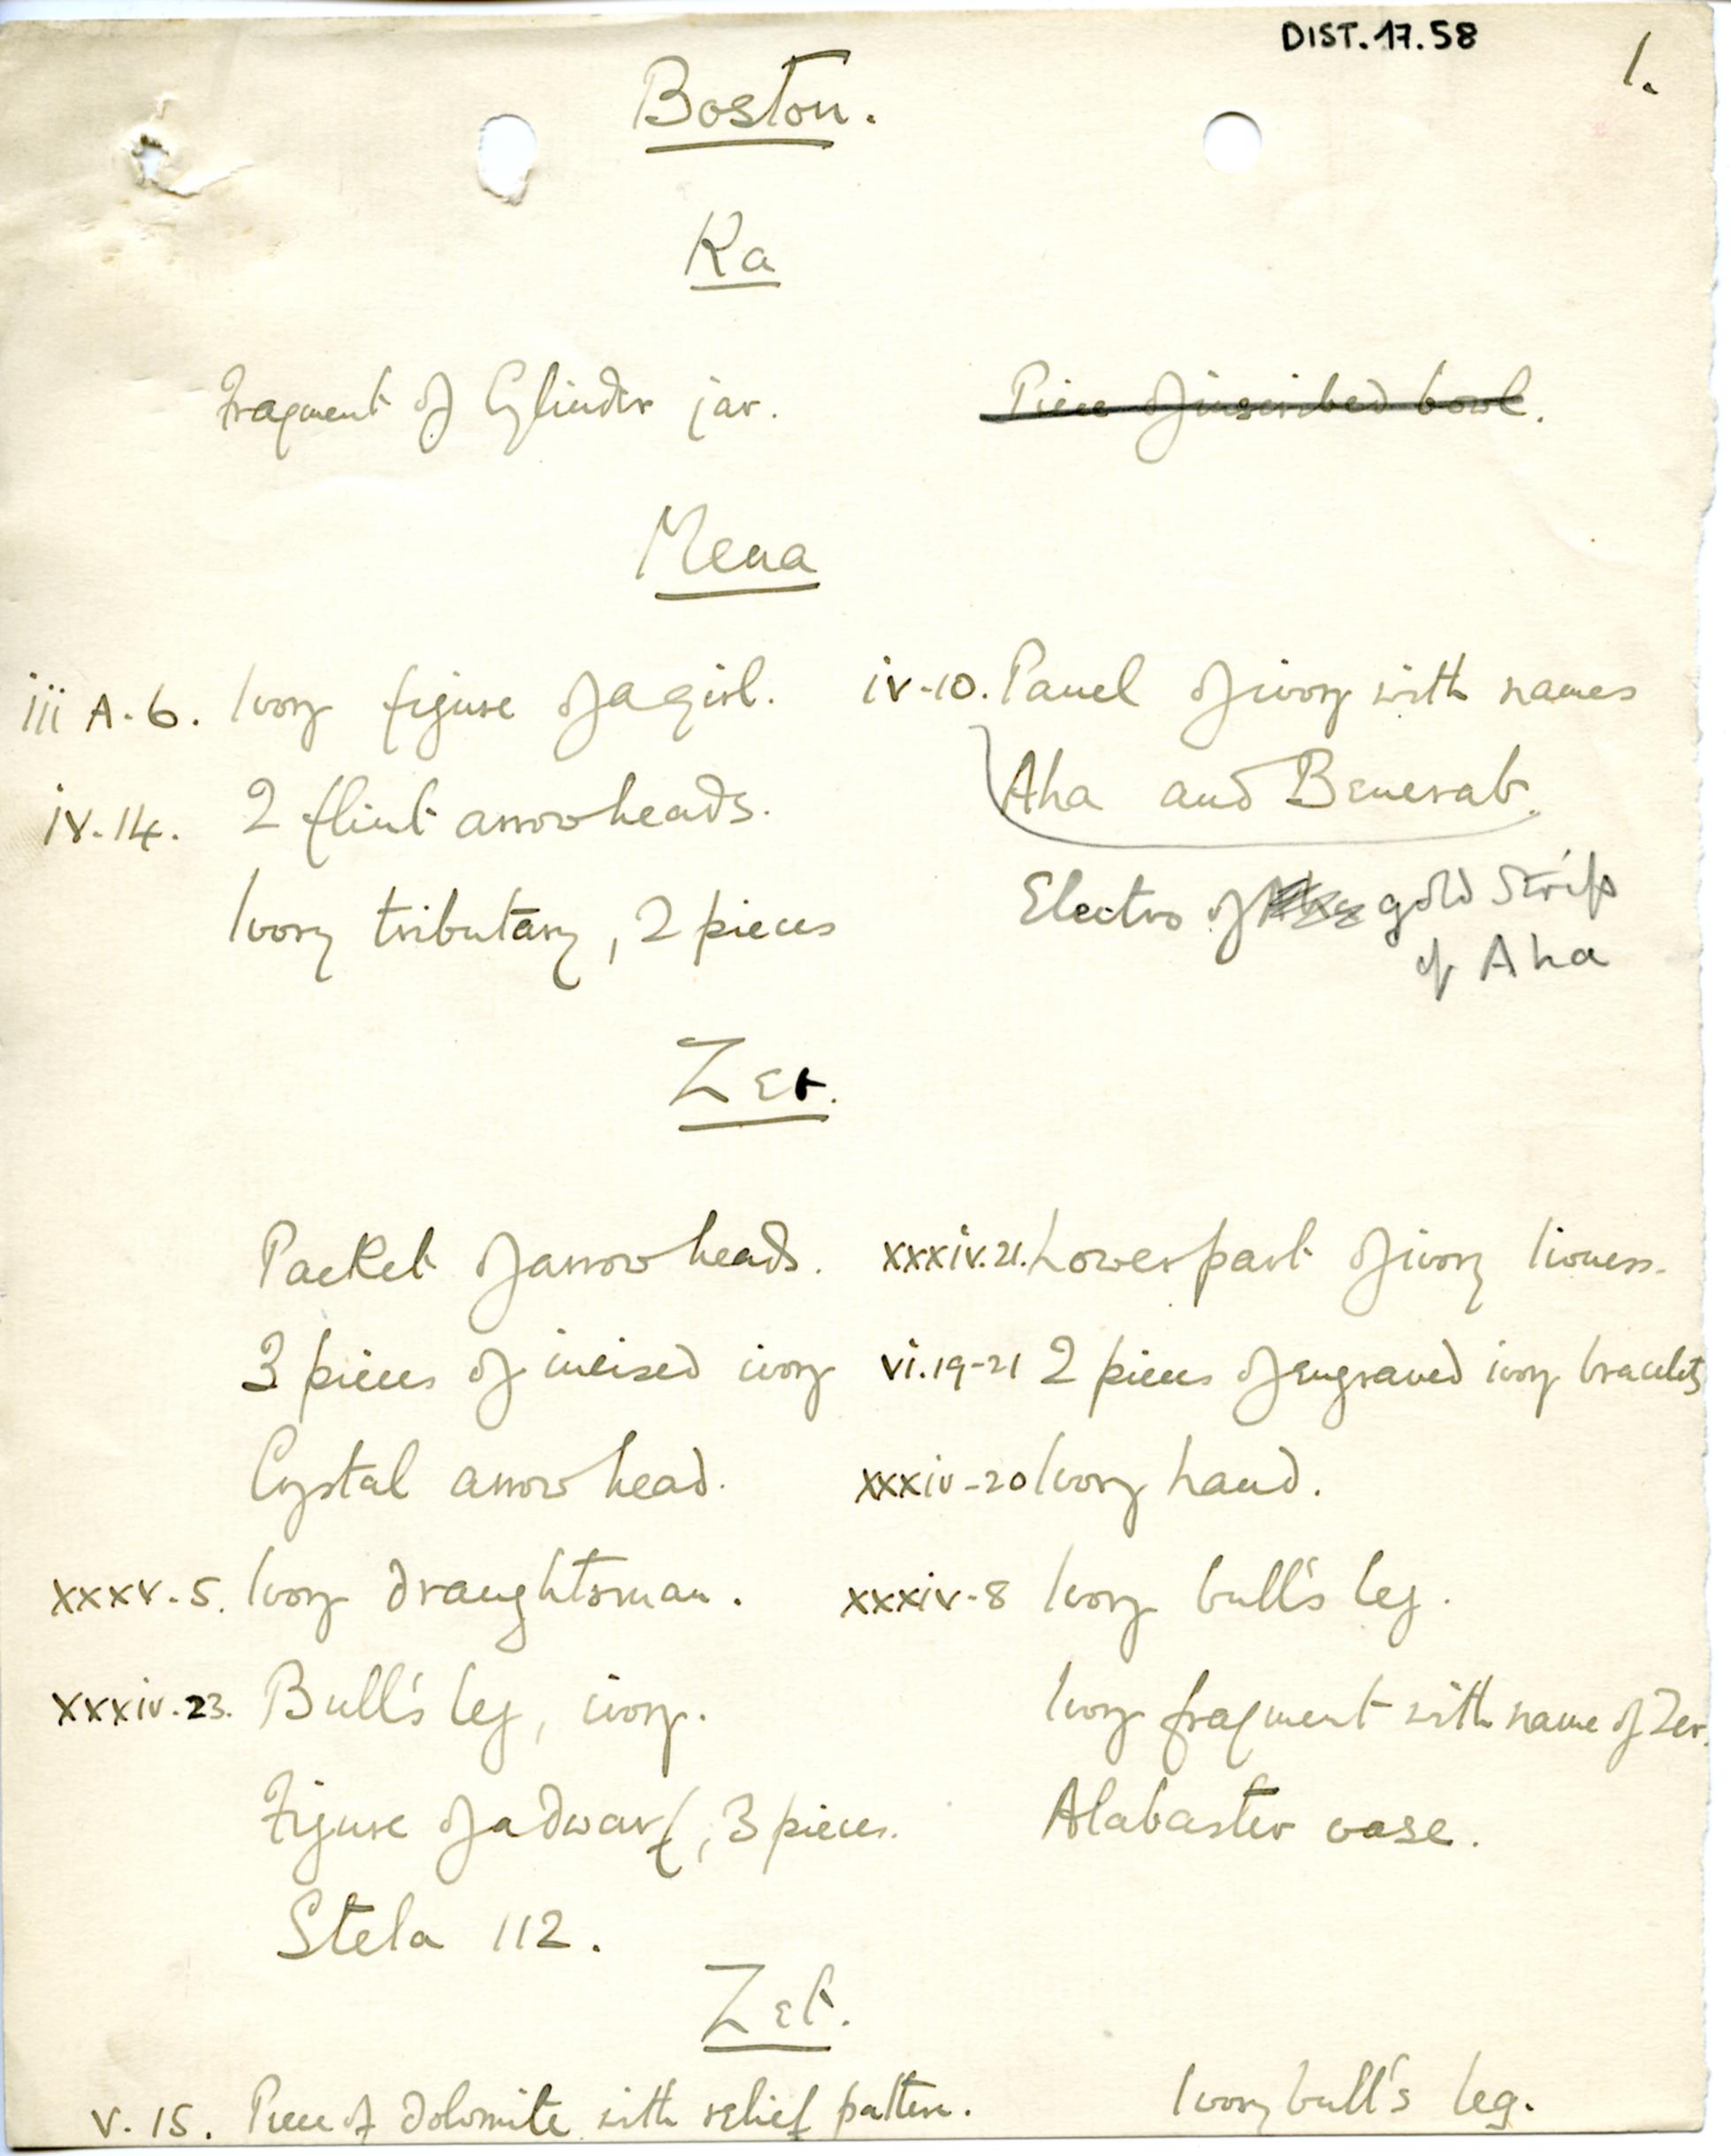 DIST. 17.58
1.
Boston.
Ka
Fragment of Cylinder jar.
Piece of inscribed bowl.
Mena
iii A. 6. Ivory figure of a girl.
iv. 14. 2 flint arrowheads.
Ivory tributary, 2 pieces
iv-10. Panel of ivory with names
Aha and Benerab.
Electro of gold strip
of Aha
Zer.
Packet of arrowheads.
3 pieces of incised ivory
Crystal arrowhead.
xxxv-5. Ivory draughtsman.
xxxiv.23. Bull's leg, ivory.
Figure of a dwarf, 3 pieces.
Stela 112.
xxxiv.21. Lower part of ivory lioness.
vi.19-21 2 pieces of engraved ivory bracelets
xxxiv-20 Ivory hand.
xxxiv-8 Ivory bull's leg.
Ivory fragment with name of Zer.
Alabaster vase.
Zet.
v. 15. Piece of dolomite with relief pattern.
Ivory bull's leg.